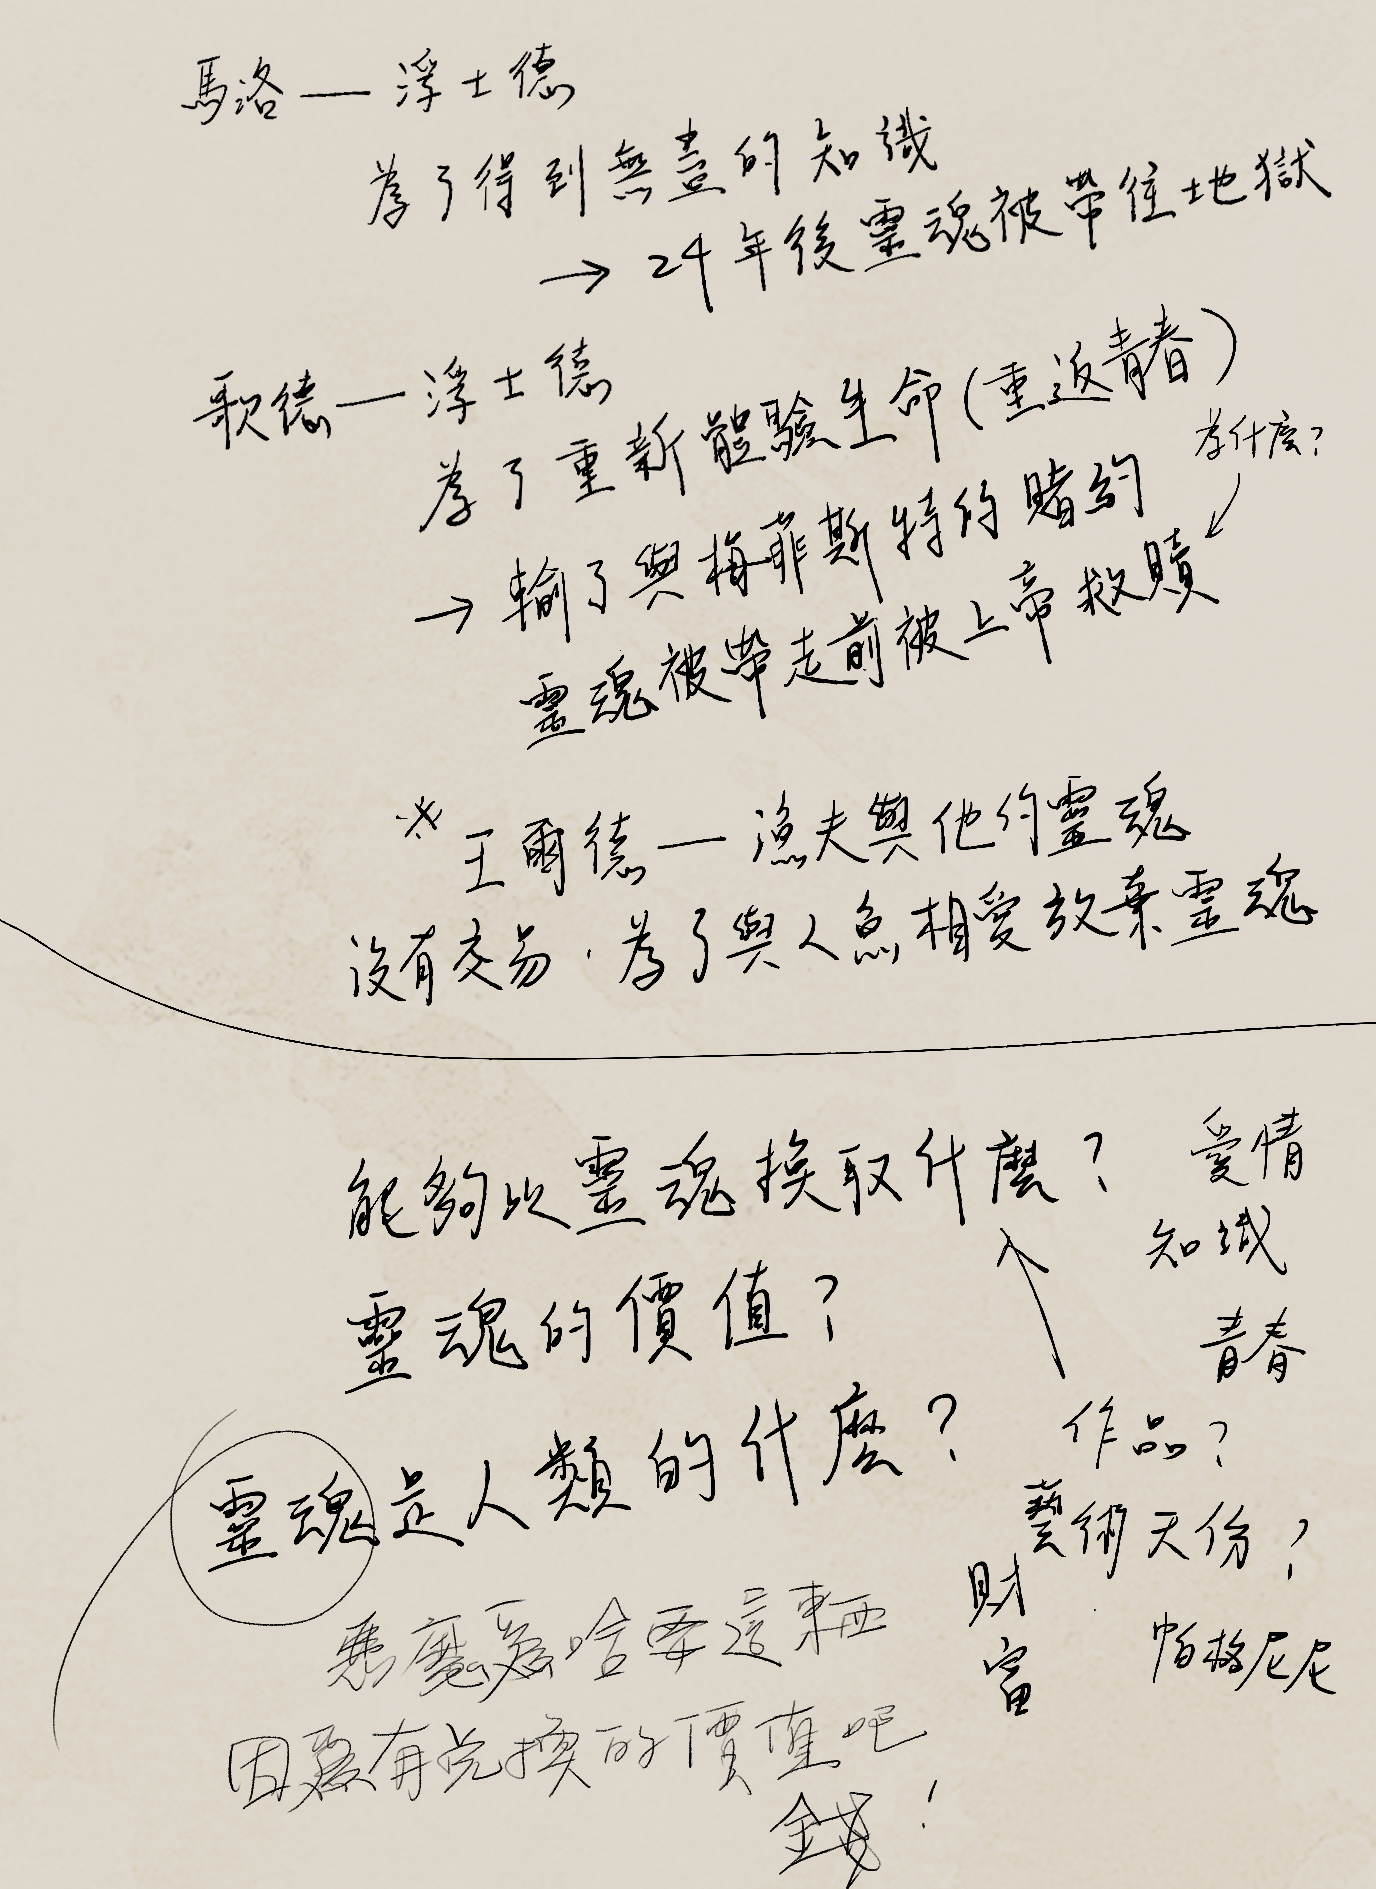 馬洛—浮士德
為了得到無盡的知識
→24年後靈魂被帶往地獄
歌德—浮士德
為了重新體驗生命(重返青春)
為什麼?
→輸了與梅菲斯特的賭約
靈魂被帶走前被上帝救贖
※王爾德—漁夫與他的靈魂
沒有交易,為了與人魚相愛放棄靈魂
能夠以靈魂換取什麼?
愛情
知識
靈魂的價值?
青春
作品?
靈魂是人類的什麼?
藝術天份?
財富
帕格尼尼
惡魔為啥要這東西
因為有兌換的價值吧
錢!